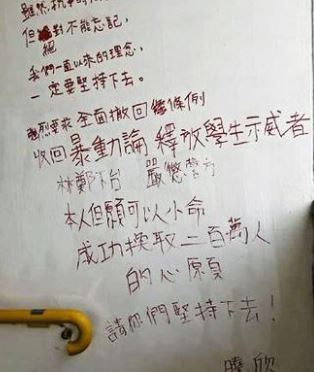 雖然抗爭的
但絕對不能忘記，
我們一直以來的理念，
一定要堅持下去。
強烈要求全面撤回條例
收回暴動論 釋放學生示威者
林鄭下台 嚴懲警方
本人但願可以小命
成功換取二百萬人
的心願
請你們堅持下去！
曉欣